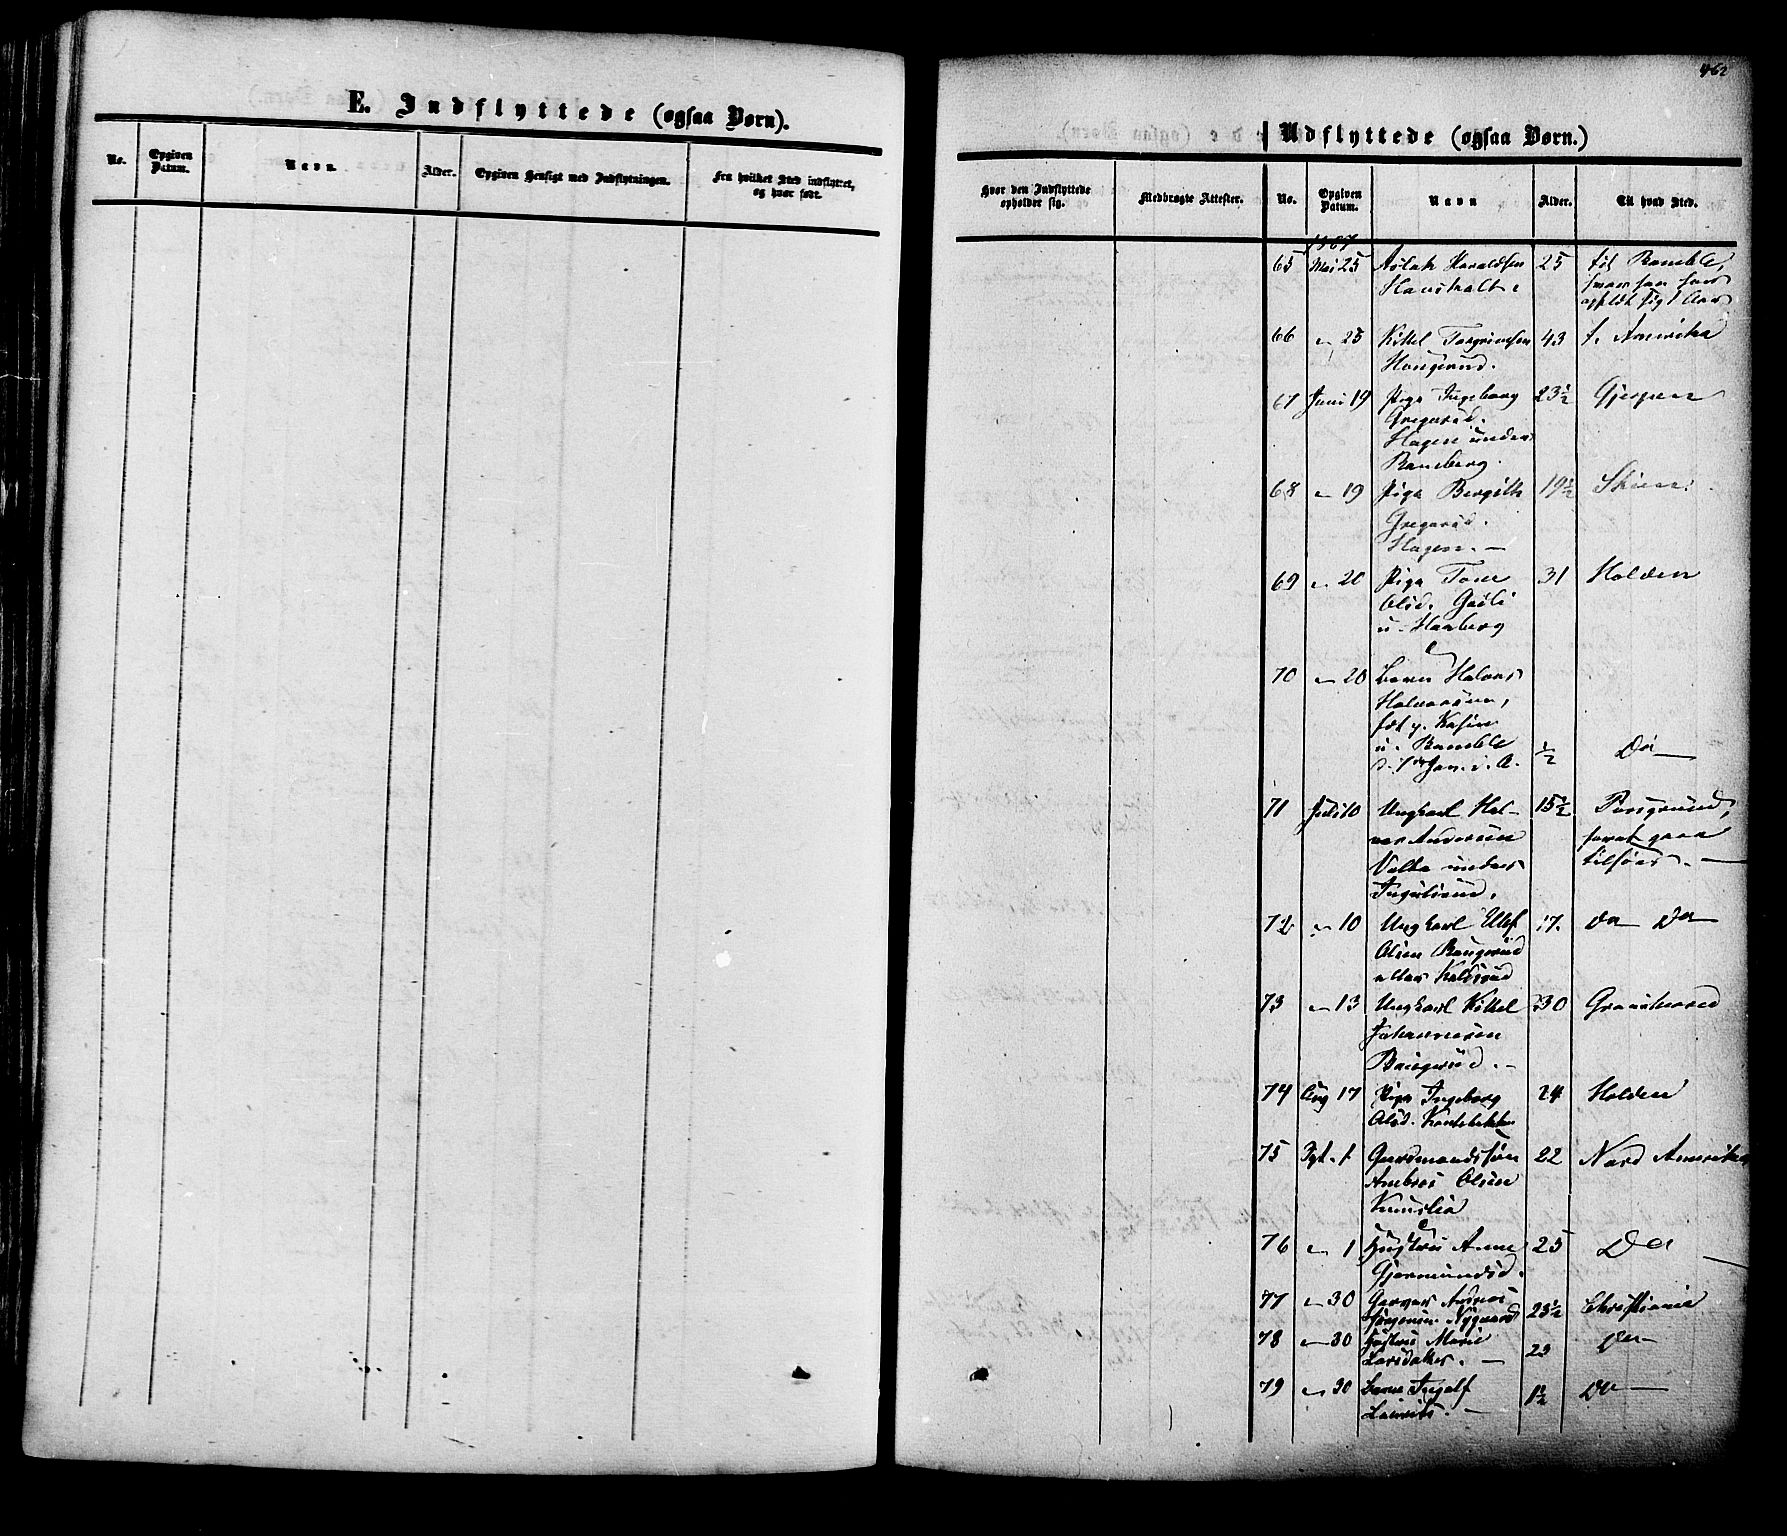 E. Indflyttede (ogsaa Børn).
No.
Opgiven Datum.
Navn.
Alder.
Opgiven Hensigt med Indflytningen.
Fra hvilket Sted indflyttet,
og hvor født.
462
Udflyttede (ogsaa Børn.)
Hvor den Indflyttede
opholder sig.
Medbragte Attester.
No.
Opgiven
Datum.
Navn
Alder.
Til hvad Sted.
1867
65 Mai 25 Aslak Haraldsen 25 til Bamble,
hvor han har
opholdt sig 1 Aar
66 " 25 Kittel Torgrimsen 43 t. Amerika
Haugerud.
67 Juni 19 Pige Ingeborg 23½ Gjerpen
Gregersd.
Hagen under
Ramberg.
68 " 19 Pige Bergith 19½ Skien.
Gregersd.
Hagen. —
69 " 20 Pige Tone 31 Holden
Olsd.
u.
70 " 20 Barn Halvor
Halvorsen,
u. Bamble
d. 1ste Jan. i. A. ½ Do —
71 Juli 10 Ungkarl Hal- 15½ Porsgrund,
vor Andersen for at gaa
under tilsøes. —
72 " 10 Ungkarl Ellef 17. Do Do
Olsen Baugerud
eller
73 " 13 Ungkarl Kittel 30 Gransherred
Johannesen
Baugerud. —
74 Aug 17 Pige Ingeborg 24 Holden
Olsd.
75 Spt. 1 Gaardmandssøn 22 Nord Amerika
Ambros Olsen
76 " 1 Hustru Anne 25 Do —
Gjermundsd.
77 " 30 Garver Andreas 25½ Christiania
Jørgensen Nygaard
78 " 30 Hustru Marie 23 Do —
Larsdatter. —
79 " 30 Barn Ingolf 1½ Do —
Laurits. —